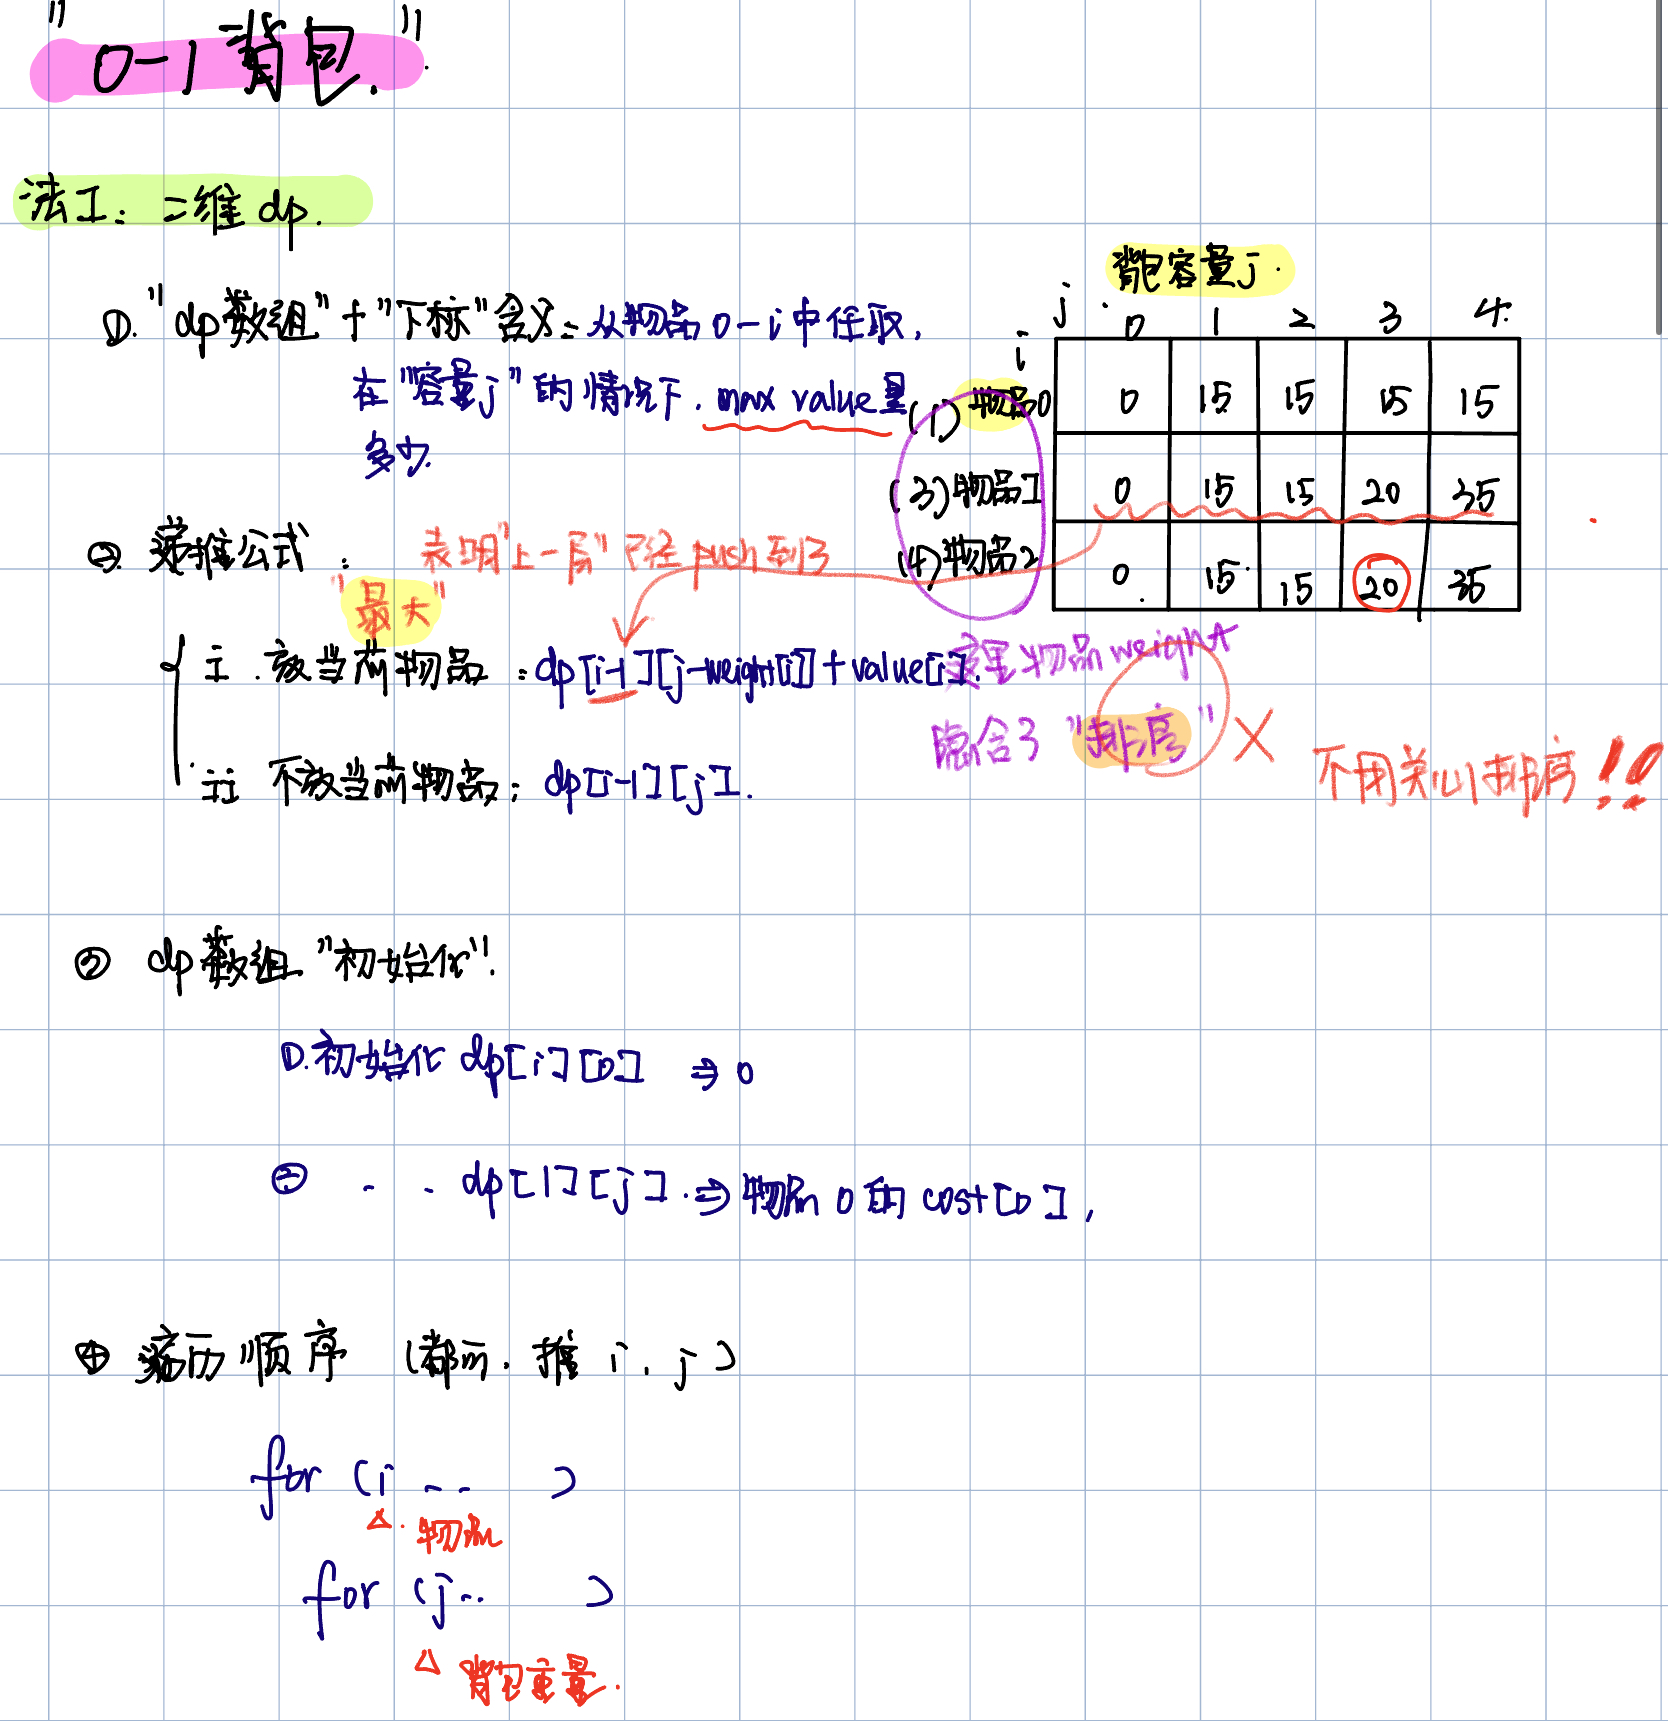 "0-1背包."
法I: 二维 dp.
①. "dp数组"+"下标"含义: 从物品0-i中任取,
在"容量j"的情况下. max value是
多少.
背包容量j.
j. 0 1 2 3 4.
i
(1) 物品0 0 15 15 15 15
(3) 物品I 0 15 15 20 35
(4) 物品2 0. 15. 15 20 35
②. 递推公式: 表明"上一层"已经push到了
"最大"
i. 放当前物品: dp[i-1][j-weight[i]]+value[i].
ii 不放当前物品: dp[i-1][j].
这里物品weight
隐含了"排序" × 不用关心排序!!
③ dp数组"初始化".
①.初始化 dp[i][0] ⇒ 0
② . . dp[1][j]. ⇒ 物品0的cost[0],
④ 遍历顺序 (都可. 推 i, j)
for (i ... )
△. 物品
for (j.. )
△ 背包重量.